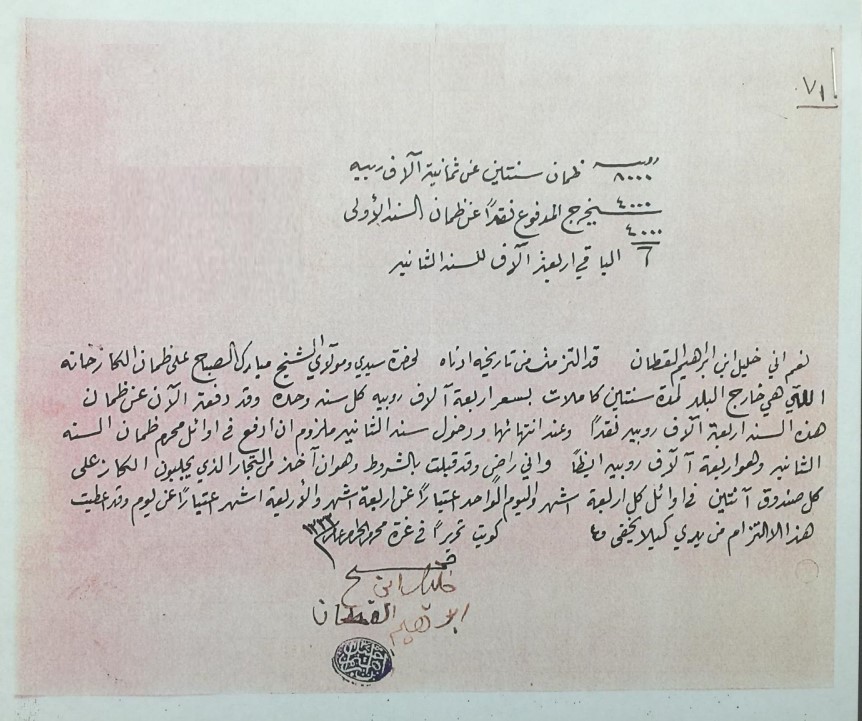 ٧١
روبيه
٨٠٠٠ ظمان سنتين عن ثمانية آلاف ربيه
٤٠٠٠ يخرج المدفوع نقداً عن ظمان السنه الأولى
٤٠٠٠
الباقي اربعة آلاف للسنه الثانيه
نعم اني خليل ابن ابراهيم القطان قد التزمت من تاريخه ادناه لحضرة سيدي ومولاوي الشيخ مبارك الصباح على ظمان الكازخانه
اللتي هي خارج البلد لمدة سنتين كاملات بسعر اربعة آلاف روبيه كل سنه وحده وقد دفعة الآن عن ظمان
هذه السنه اربعة آلاف روبيه نقداً وعند انتهائها ودخول سنه الثانيه ملزوم ان ادفع في اوائل محرم ظمان السنه
الثانيه وهو اربعة آلاف روبيه ايظاً واني راضي وقد قبلت بالشروط وهو ان آخذ من التجار الذي يجلبون الكاز على
كل صندوق آنتين في اوائل كل اربعة اشهر واليوم الواحد اعتباراً عن اربعة اشهر والأربعة اشهر اعتباراً عن يوم وقد اعطيت
هذا الالتزام من يدي كيلا يخفى كويت تحريراً في غرة محرم الحرام ١٣٣٣
صح
خليل ابن
ابراهيم القطان